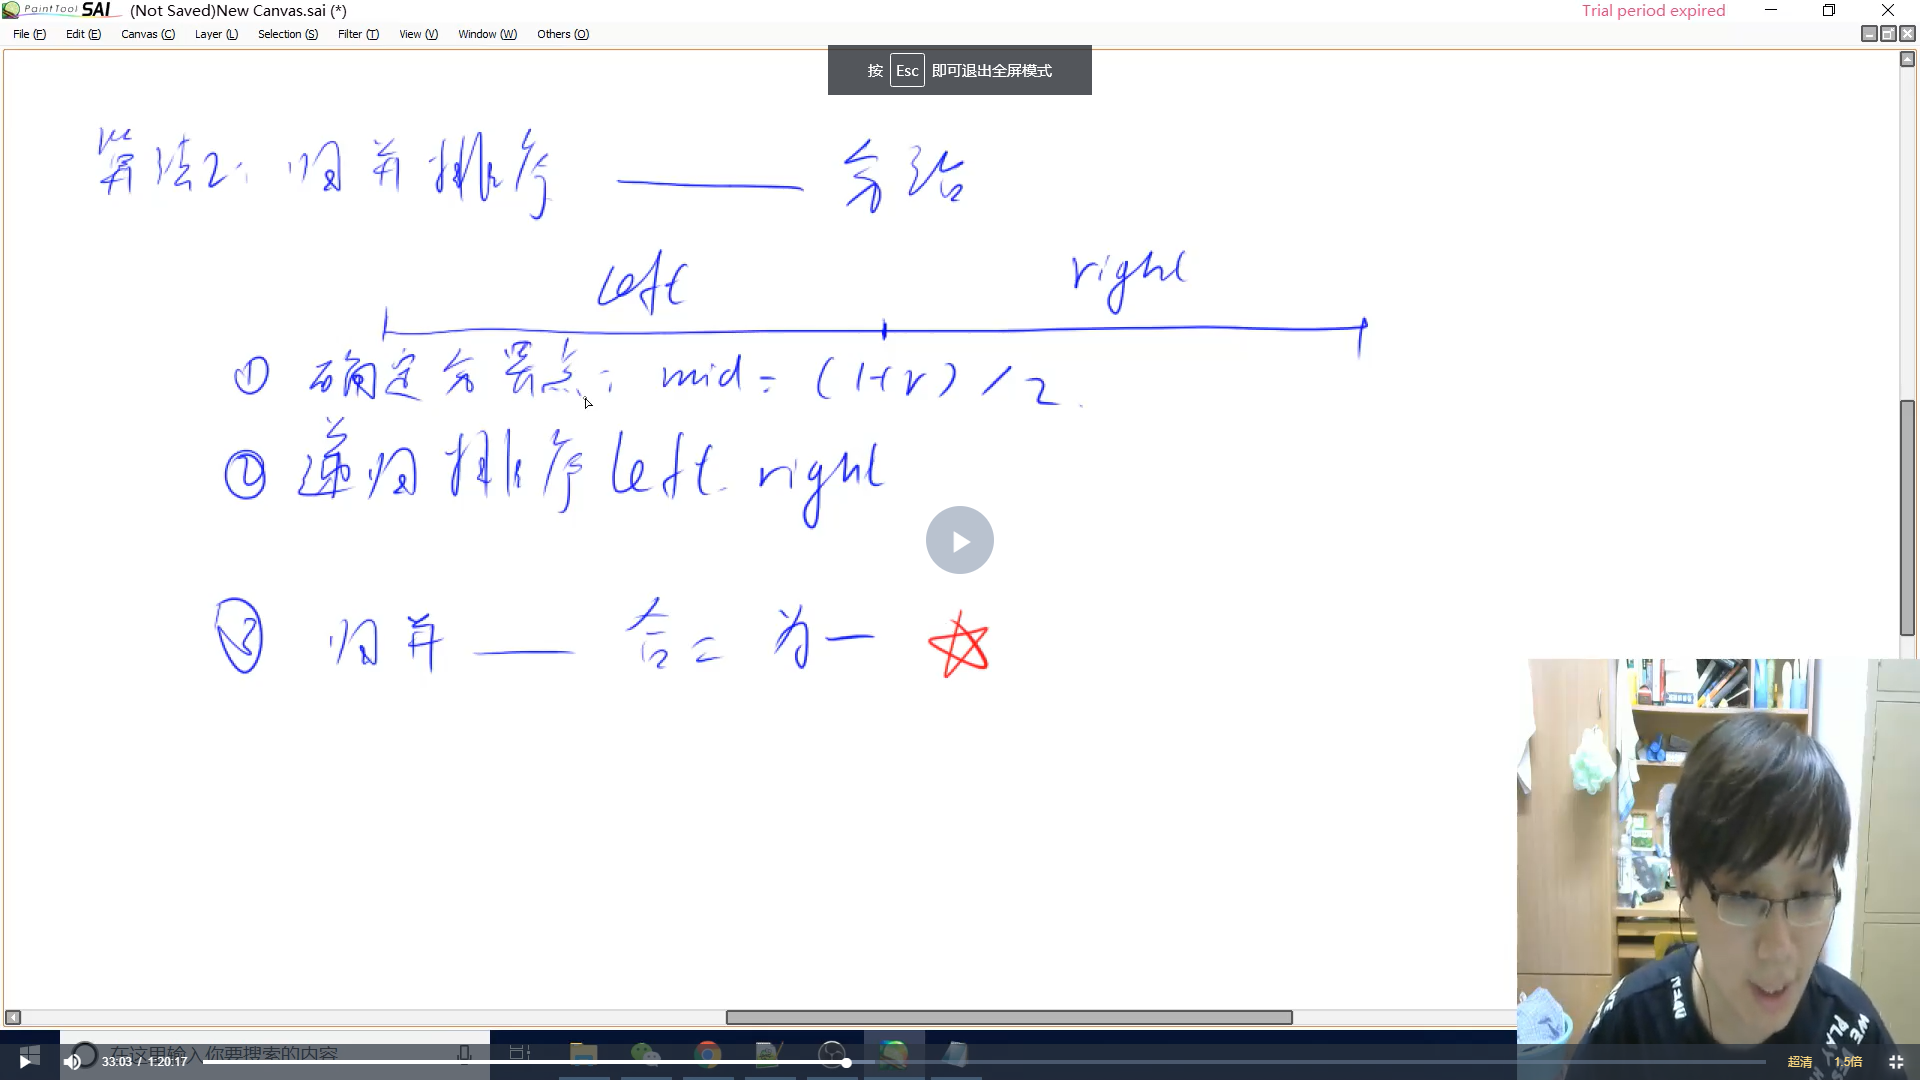 PaintTool SAI (Not Saved)New Canvas.sai (*) Trial period expired
File (F) Edit (E) Canvas (C) Layer (L) Selection (S) Filter (T) View (V) Window (W) Others (O)
按 Esc 即可退出全屏模式
算法2: 归并排序 —— 分治
left right
① 确定分界点: mid = (l+r) / 2
② 递归排序 left right
③ 归并 —— 合二为一 ☆
在这里输入你要搜索的内容
33:03 / 1:20:17 超清 1.5倍